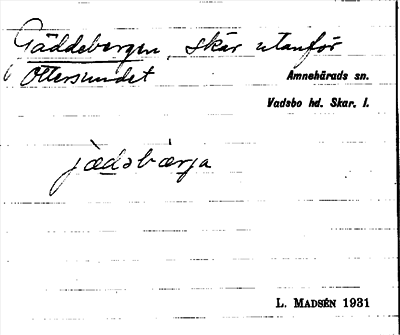 Gäddebergen, skär utanför
Ottersundet
Amnehärads sn.
Vadsbo hd. Skar. l.
jædəbærja
L. MADSÉN 1931